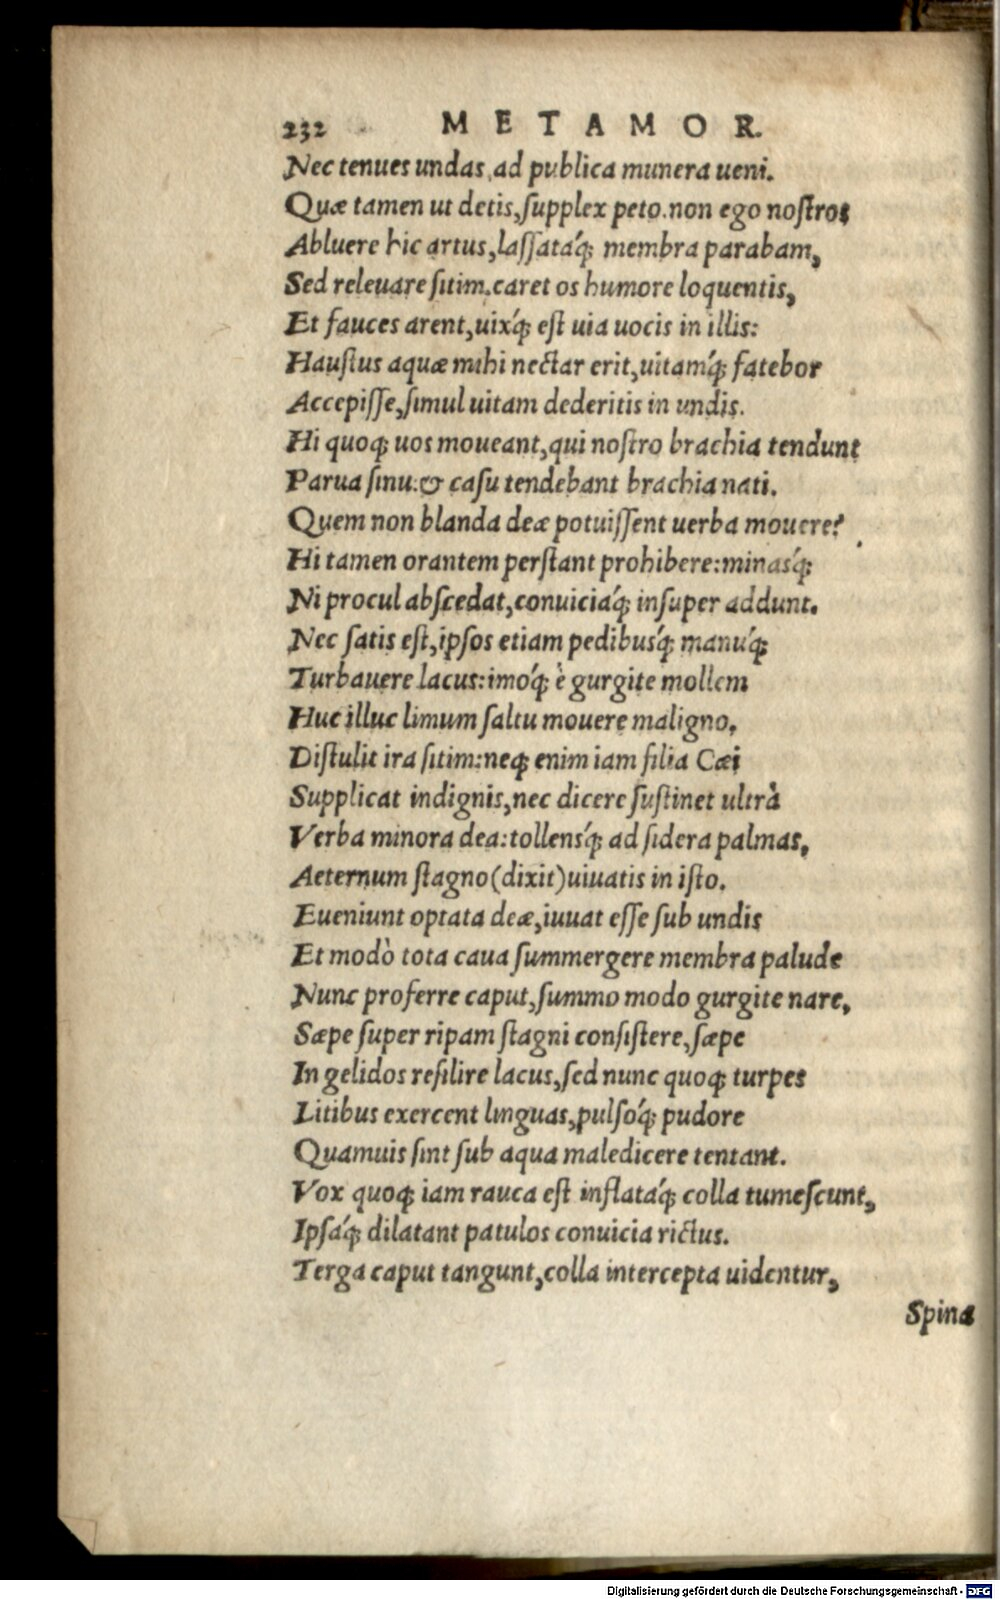 232 METAMOR.
Nec tenues undas ad publica munera ueni.
Quæ tamen ut detis, supplex peto. non ego nostros
Abluere hic artus, lassatáq; membra parabam,
Sed releuare sitim. caret os humore loquentis,
Et fauces arent, uixq́; est uia uocis in illis:
Haustus aquæ mihi nectar erit, uitamq́; fatebor
Accepisse, simul uitam dederitis in undis.
Hi quoq; uos moueant, qui nostro brachia tendunt
Parua sinu: & casu tendebant brachia nati.
Quem non blanda deæ potuissent uerba mouere?
Hi tamen orantem perstant prohibere: minasq́;
Ni procul abscedat, conuiciáq; insuper addunt.
Nec satis est, ipsos etiam pedibusq́; manúq;
Turbauere lacus: imóq; è gurgite mollem
Huc illuc limum saltu mouere maligno.
Distulit ira sitim: neq; enim iam filia Cæi
Supplicat indignis, nec dicere sustinet ultrà
Verba minora dea: tollensq́; ad sidera palmas,
Aeternum stagno (dixit) uiuatis in isto.
Eueniunt optata deæ, iuuat esse sub undis
Et modò tota caua summergere membra palude
Nunc proferre caput, summo modo gurgite nare,
Sæpe super ripam stagni consistere, sæpe
In gelidos resilire lacus, sed nunc quoq; turpes
Litibus exercent linguas, pulsóq; pudore
Quamuis sint sub aqua maledicere tentant.
Vox quoq; iam rauca est inflatáq; colla tumescunt,
Ipsáq; dilatant patulos conuicia rictus.
Terga caput tangunt, colla intercepta uidentur,
Spina
Digitalisierung gefördert durch die Deutsche Forschungsgemeinschaft - DFG